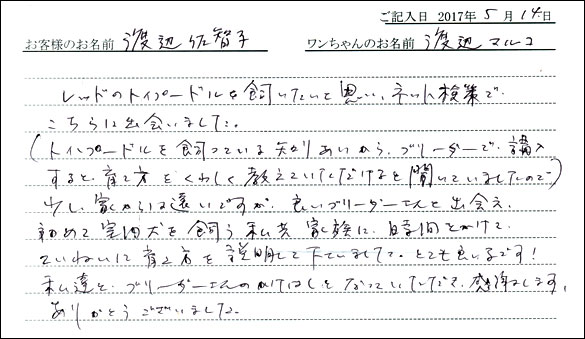 ご記入日 2017年 5 月 14 日
お客様のお名前 渡辺 佐智子 ワンちゃんのお名前 渡辺 マルコ
レッドのトイプードルを飼いたいと思い、ネット検策で
こちらに出会いました。
(トイプードルを飼っている知りあいから、ブリーダーで購入
すると、育て方をくわしく教えていただけると聞いていましたので)
少し、家からは遠いですが、良いブリーダーさんと出会え、
初めて室内犬を飼う私共家族に、時間をかけて、
ていねいに育て方を説明して下さいまして、とても良いです!
私達と、ブリーダーさんのかけはしとなっていただいて、感謝します。
ありがとうございました。